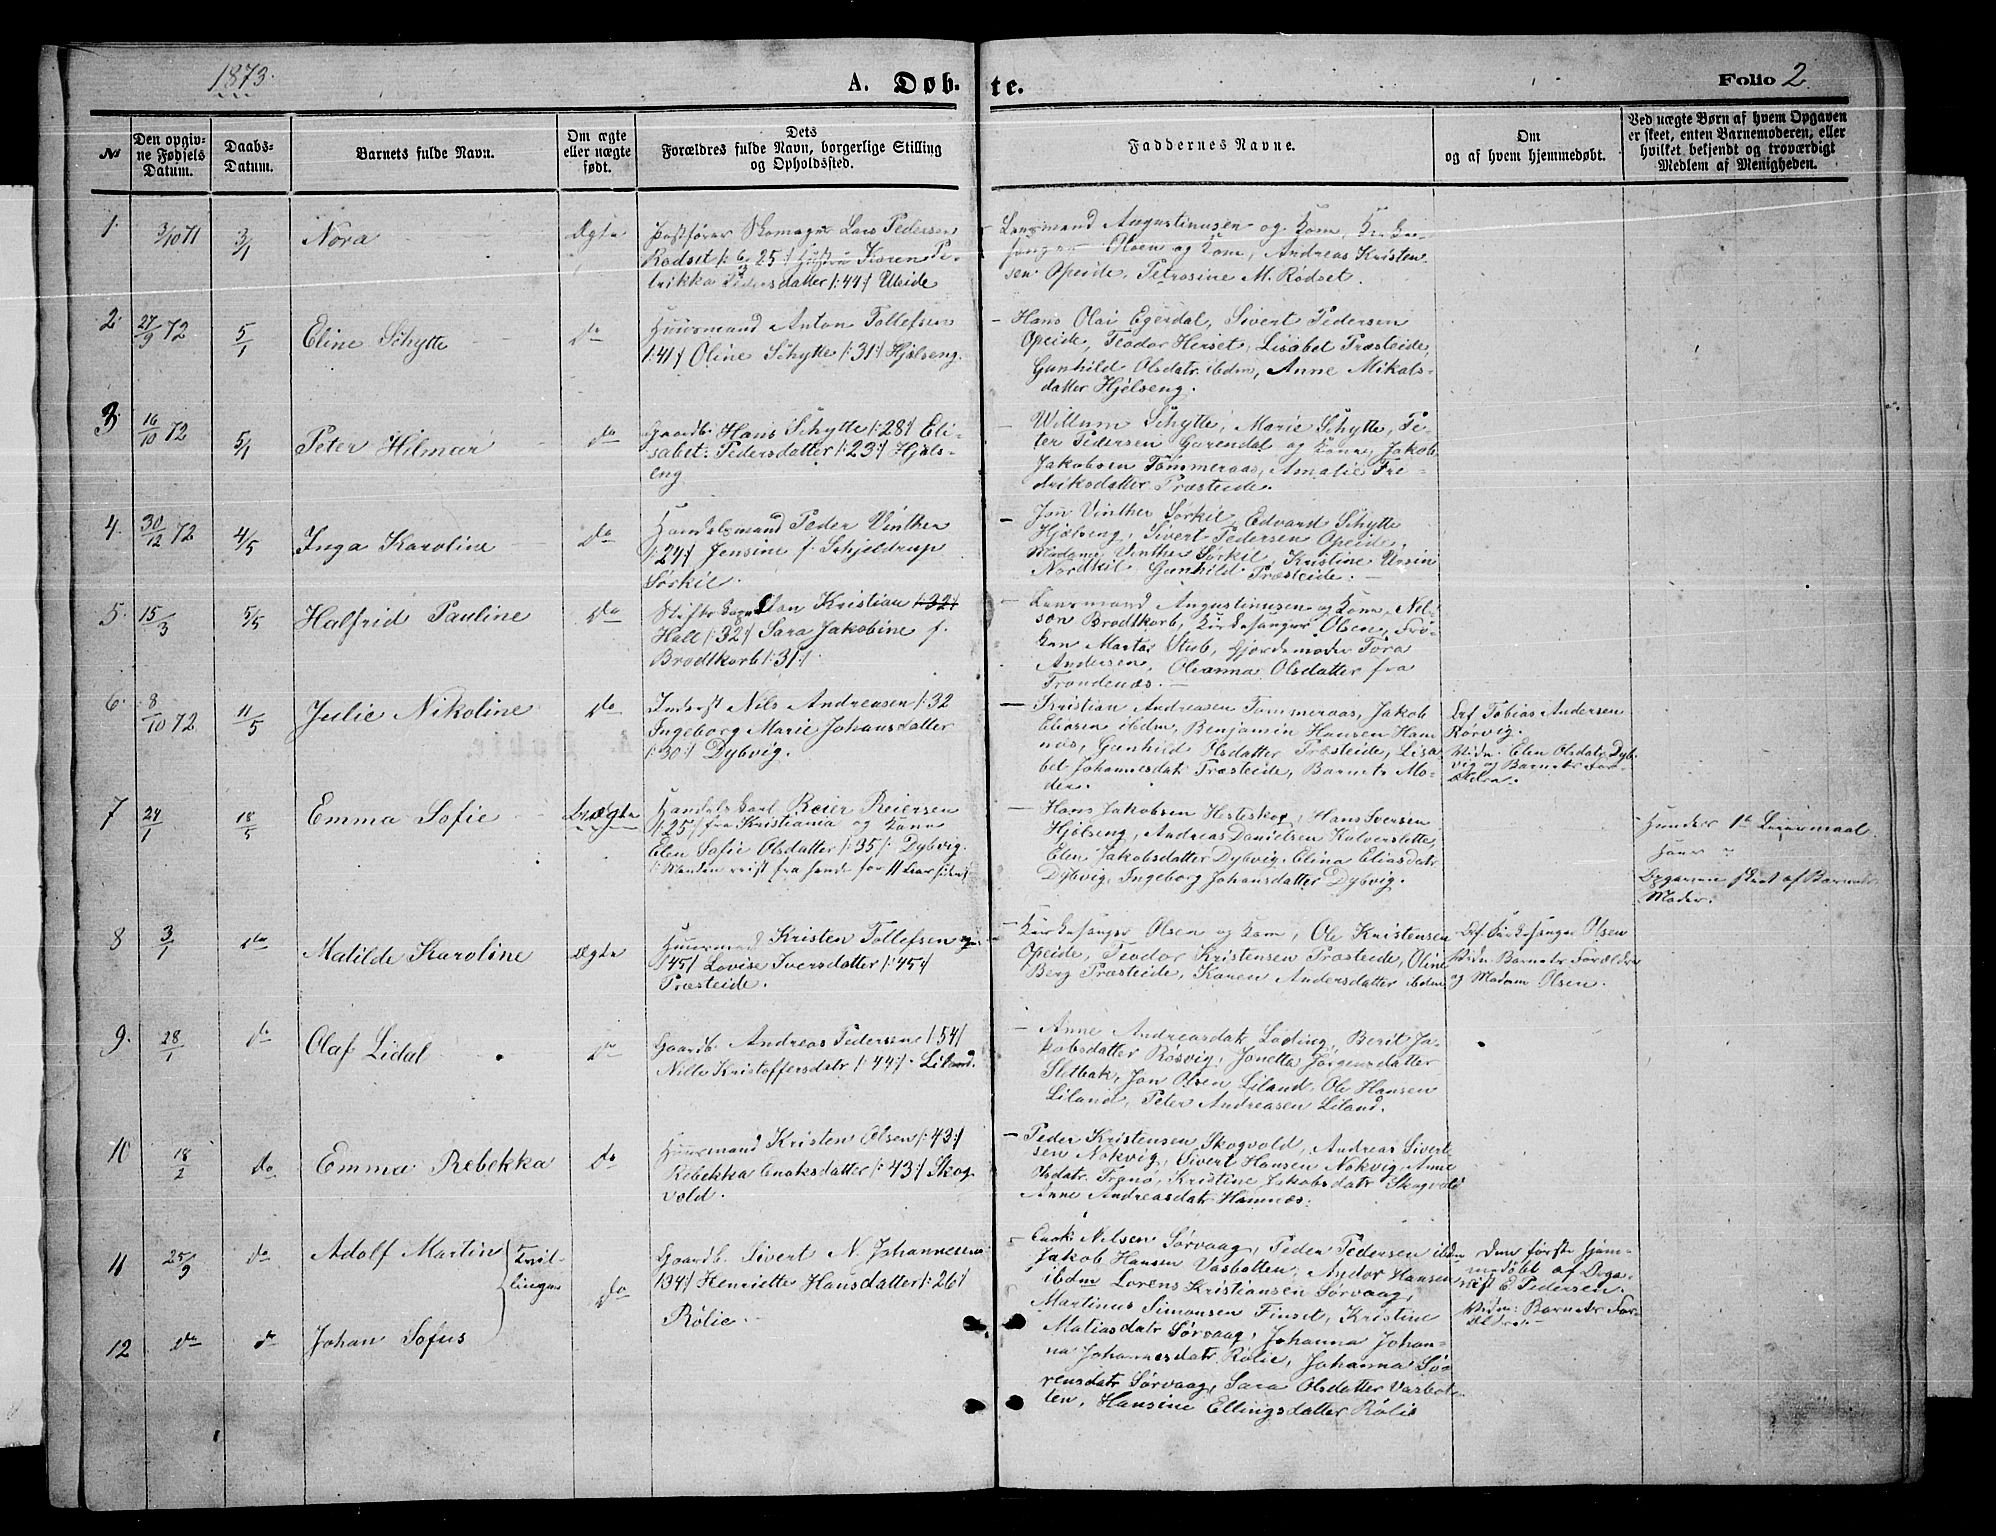 1873.
A. Døb-
te.
Folio 2
№
Den opgiv-
ne Fødsels
Datum.
Daabs-
Datum.
Barnets fulde Navn.
Om ægte
eller uægte
født.
Dets
Forældres fulde Navn, borgerlige Stilling
og Opholdssted.
Faddernes Navne.
Om
og af hvem hjemmedøbt.
Ved uægte Børn af hvem Opgaven
er skeet, enten Barnemoderen, eller
hvilket bekjendt og troværdigt
Medlem af Menigheden.
1.
3/10 71
3/1
Nora
Ægte
Postfører Skomager Lars Pedersen
Rødset /: 25 :/ Hustru Karen Pe-
trikka Pedersdatter /: 44 :/ Uleide
Lensmand Augustinusen og Kone,
sanger Olsen og Kone, Andreas Kristen-
sen Opeide, Petrosine M. Rødset.
2.
27/9 72
5/1
Eline Schytte
do
Huusmand Anton Tollefsen
/: 41 :/ Oline Schytte /: 31 :/ Hjelseng.
Hans Olai Egerdal, Sivert Pedersen
Opeide, Teodor Herset, Lisabet Præsteide,
Gunhild Olsdatr ibdm, Anne Mikals-
datter Hjelseng.
3
16/10 72
5/1
Peter Hilmar
do
Gaardb. Hans Schytte /: 28 :/ Eli-
sabet Pedersdatter /: 23 :/ Hjels-
eng
Willum Schytte, Marie Schytte, Pe-
ter Pedersen Garendal og Kone, Jakob
Jakobsen Tømmeraas, Amalie Fre-
driksdatter Præsteide.
4.
30/12 72
4/5
Inga Karoline
do
Handelsmand Peder Vinther
/: 24 :/ Jensine f. Schjeldrup
Sørkil.
Jon Vinther Sørkil, Edvard Schytte
Hjelseng, Sivert Pedersen Opeide,
Madame Vinther Sørkil, Kristine Ursin
Nordkil, Gunhild Præsteide.
5.
15/3
5/5
Halfrid Pauline
do
Jan Kristian /: 32 :/
Hall /: 32 :/ Sara Jakobine f.
Brodtkorb /: 31 :/
Lensmand Augustinusen og Kone, Nel-
son Brodtkorb, Kirkesanger Olsen, Frø-
ken Marta Stub, Gjordemoder Tora
Andersen, Oleanna Olsdatter fra
Trondenæs.
6.
8/10 72
11/5
Julie Nikoline
do
Inderst Nils Andreasen /: 32
Ingeborg Marie Johansdatter
/: 30 :/ Dybvig.
Kristian Andreasen Tømmeraas, Jakob
Eliasen ibdm, Benjamin Hansen Ham-
næs, Gunhild Olsdatter Præsteide, Lisa-
bet Johannesdatr Præsteide, Barnets Mo-
der.
Tobias Andersen
Rørvig.
Vidn. Elen Olsdatr Dyb-
vig og Barnets For-
ældre.
7
24/1
18/5
Emma Sofie
Uægte
Handelskarl Reier Reiersen
/: 25 / fra Kristiania og Kone
Elen Sofie Olsdatter /: 35 /: Dybvig.
/: Manden reist fra hende for 11 Aar siden
Hans Jakobsen Hesteskog, Hans Iversen
Hjelseng, Andreas Danielsen Kalverslette,
Elen Jakobsdatter Dybvig, Elina Eliasdatr
Dybvig, Ingeborg Johansdatter Dybvig.
Hendes 1te Leiermaal
Hans "
Opgaven skeet af Barnets
Moder.
8
3/1
do
Matilde Karoline
Ægte
Huusmand Kristen Tollefsen og
/: 45 / Lovise Iversdatter /: 45 :/
Præsteide.
Kirkesanger Olsen og Kone, Ole Kristensen
Opeide, Teodor Kristensen Præsteide, Oline
Berg Præsteide, Karen Andersdatter ibdm
af Kirkesanger Olsen
Vidn. Barnets Forældre
og Madam Olsen.
9.
28/1
do
Olaf Lidal
do
Gaardb. Andreas Pedersen /: 54 /
Nille Kristoffersdatr /: 44 :/ Liland.
Anne Andreasdatr Løding, Berit Ja-
kobsdatter Røsvig, Jonetta Jørgensdatter
Sletbak, Jon Olsen Liland, Ole Hansen
Liland, Peter Andreasen Liland.
10
18/2
do
Emma Rebekka
do
Huusmand Kristen Olsen /: 43 :/
Rebekka Enoksdatter /: 43 :/ Skog-
vold.
Peder Kristensen Skogvold, Andreas Sivert-
sen Nøkvig, Sivert Hansen Nøkvig, Anne
Olsdatr Tranø, Kristine Jakobsdatr Skogvold
Anne Andreasdatr Hamnæs.
11
25/9
do
Adolf Martin
Tvil-
linger
do
Gaardb. Sivert N. Johannesen
/: 34 / Henriette Hansdatter /: 26 /
Rølie.
Enok Nilsen Sørvaag, Peder Pedersen ibdm
Jakob Hansen Vasbotten, Andor Hansen
ibdm Lorens Kristiansen Sørvaag,
Martinus Simonsen Finset, Kristine
Matiasdatr Sørvaag, Johanna Johan-
na Johannesdatr Rølie, Johanna Sø-
rensdatr Sørvaag, Sara Olsdatter Vasbot-
ten, Hansine Ellingsdatter Rølie
Den første hjem-
medøbt af Orga-
nist E. Pedersen.
Vidn: Barnets For-
ældre.
12
do
do
Johan Sofus